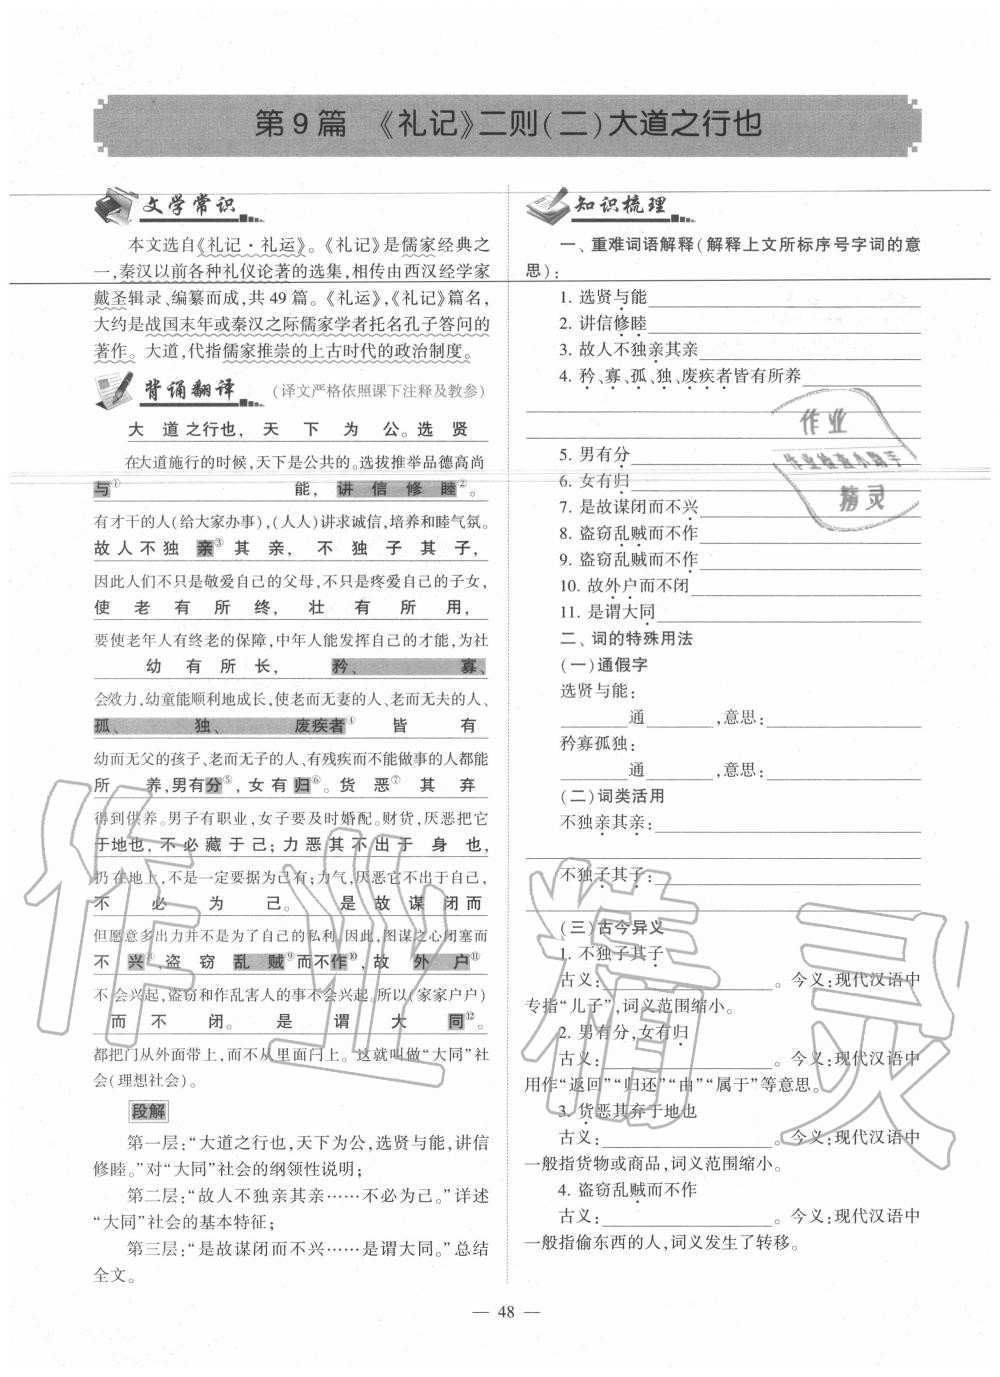 第9篇 《礼记》二则(二)大道之行也
文学常识
本文选自《礼记·礼运》。《礼记》是儒家经典之
一,秦汉以前各种礼仪论著的选集,相传由西汉经学家
戴圣辑录、编纂而成,共49篇。《礼运》,《礼记》篇名,
大约是战国末年或秦汉之际儒家学者托名孔子答问的
著作。大道,代指儒家推崇的上古时代的政治制度。
背诵翻译 (译文严格依照课下注释及教参)
大 道 之行也, 天 下 为 公。选 贤
在大道施行的时候,天下是公共的。选拔推举品德高尚
与① 能, 讲 信 修 睦②。
有才干的人(给大家办事),(人人)讲求诚信,培养和睦气氛。
故 人 不 独 亲③ 其 亲, 不 独 子 其 子,
因此人们不只是敬爱自己的父母,不只是疼爱自己的子女,
使 老 有 所 终, 壮 有 所 用,
要使老年人有终老的保障,中年人能发挥自己的才能,为社
幼 有 所 长, 矜、 寡、
会效力,幼童能顺利地成长,使老而无妻的人、老而无夫的人、
孤、 独、 废疾者④ 皆 有
幼而无父的孩子、老而无子的人、有残疾而不能做事的人都能
所 养,男有分⑤, 女 有 归⑥。货 恶⑦ 其 弃
得到供养。男子有职业,女子要及时婚配。财货,厌恶把它
于地也, 不 必 藏 于 己;力 恶其 不 出 于 身 也,
扔在地上,不是一定要据为己有;力气,厌恶它不出于自己,
不 必 为 己。 是 故 谋 闭 而
但愿意多出力并不是为了自己的私利。因此,图谋之心闭塞而
不 兴⑧,盗 窃 乱 贼⑨而不作⑩, 故 外 户⑪
不会兴起,盗窃和作乱害人的事不会兴起。所以(家家户户)
而 不 闭。 是 谓 大 同⑫。
都把门从外面带上,而不从里面闩上。这就叫做“大同”社
会(理想社会)。
段解
第一层:“大道之行也,天下为公,选贤与能,讲信
修睦。”对“大同”社会的纲领性说明;
第二层:“故人不独亲其亲……不必为己。”详述
“大同”社会的基本特征;
第三层:“是故谋闭而不兴……是谓大同。”总结
全文。
知识梳理
一、重难词语解释(解释上文所标序号字词的意
思):
1. 选贤与能
2. 讲信修睦
3. 故人不独亲其亲
4. 矜、寡、孤、独、废疾者皆有所养
5. 男有分
6. 女有归
7. 是故谋闭而不兴
8. 盗窃乱贼而不作
9. 盗窃乱贼而不作
10. 故外户而不闭
11. 是谓大同
二、词的特殊用法
(一)通假字
选贤与能:
______通______,意思:
矜寡孤独:
______通______,意思:
(二)词类活用
不独亲其亲:
不独子其子:
(三)古今异义
1. 不独子其子
古义:______。今义:现代汉语中
专指“儿子”,词义范围缩小。
2. 男有分,女有归
古义:______。今义:现代汉语中
用作“返回”“归还”“由”“属于”等意思。
3. 货恶其弃于地也
古义:______。今义:现代汉语中
一般指货物或商品,词义范围缩小。
4. 盗窃乱贼而不作
古义:______。今义:现代汉语中
一般指偷东西的人,词义发生了转移。
作业
作业检查小助手
精灵
作业精灵
— 48 —